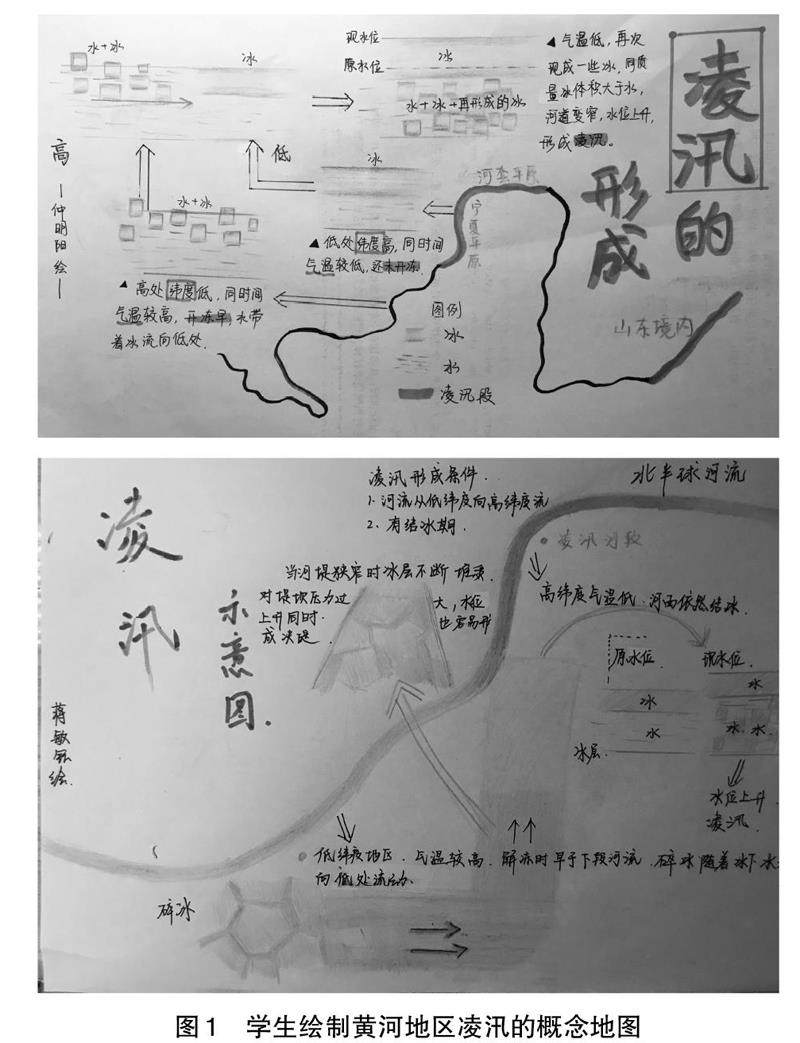 凌汛的
形成
水+冰
冰
现水位
原水位
冰
水+冰+再形成的冰
▲气温低,再次
现成一些冰,同质
量冰体积大于水,
河道变窄,水位上升,
形成凌汛。
高
低
冰
水+冰
河套平原
宁夏平原
▲低处纬度高,同时间
气温较低,还未开冻.
▲高处纬度低,同时间
气温较高,开冻早,水带
着冰流向低处.
图例
冰
水
凌汛段
山东境内
—仲明阳绘—
凌汛
示意图.
凌汛形成条件.
1.河流从低纬度向高纬度流
2.有结冰期.
北半球河流
凌汛河段
当河堤狭窄时冰层不断堆积
对堤坝压力过
大,水位
上升同时.
也容易形
成决堤.
高纬度气温低.河面依然结冰.
原水位.
现水位.
冰
水
水
水.水.
冰层.
水位上升
凌汛.
低纬度地区.气温较高.解冻时早于下段河流.碎冰随着冰下水
向低处流动.
碎冰
绘.
图1 学生绘制黄河地区凌汛的概念地图